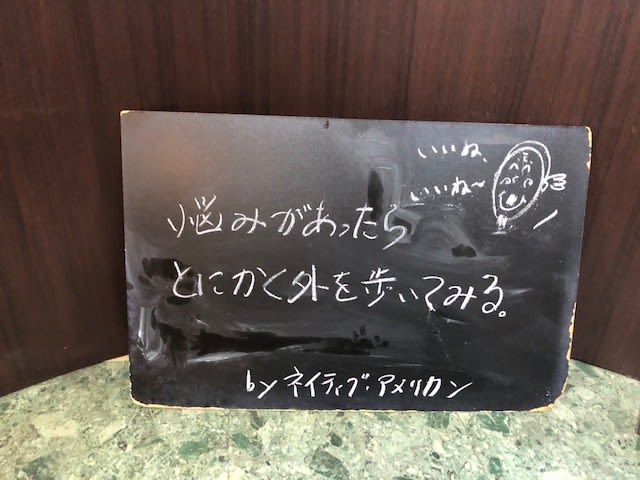 いいね、
いいね〜
悩みがあったら
とにかく外を歩いてみる。
by ネイティブ・アメリカン